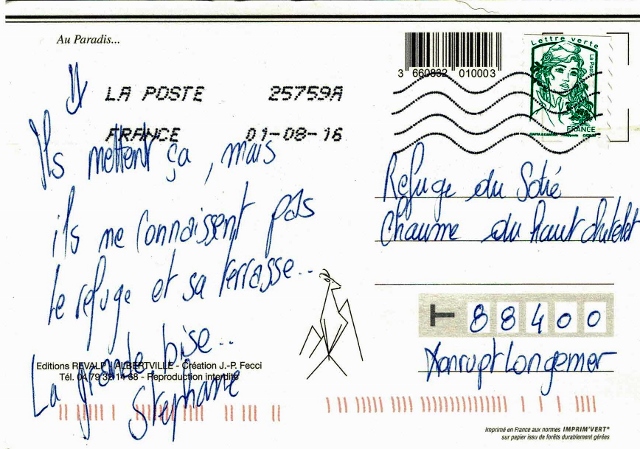 Au Paradis...
LA POSTE 25759A
FRANCE 01-08-16
Ils mettent ça, mais
ils me connaissent pas
le refuge et sa terrasse..
La grande bise..
Stéphane
Editions REVALP ALBERTVILLE - Création J.-P. Fecci
Tél. 04 79 38 14 68 - Reproduction interdite
3 660832 010003
Lettre verte
La Poste
FRANCE
Refuge du Sotié
Chaume du haut
88400
Xonrupt Longemer
Imprimé en France aux normes IMPRIM'VERT®
sur papier issu de forêts durablement gérées